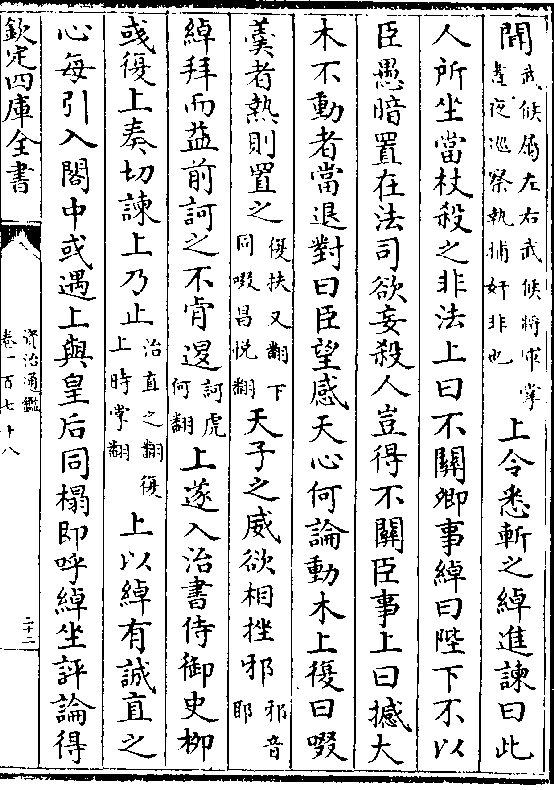 聞武候屬左右武候將軍掌晝夜巡察執捕奸非也上令悉斬之綽進諫曰此
人所坐當杖殺之非法上曰不關卿事綽曰陛下不以
臣愚暗置在法司欲妄殺人豈得不關臣事上曰撼大
木不動者當退對曰臣望感天心何論動木上復曰啜
羹者熱則置之復扶又翻下同啜昌悦翻天子之威欲相挫邪邪音耶
綽拜而益前訶之不肯退訶虎何翻上遂入治書侍御史柳
彧復上奏切諫上乃止治直之翻復上時掌翻上以綽有誠直之
心每引入閤中或遇上與皇后同榻即呼綽坐評論得
欽定四庫全書
資治通鑑
卷一百七十八
二十二